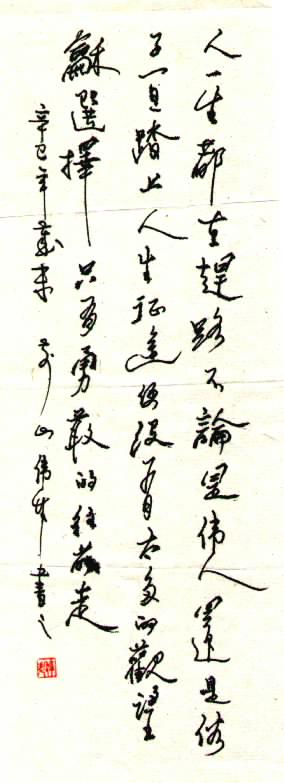 人一生都在趕路不論是伟人還是俗
子一旦踏上人生征途便沒有太多的觀望
龢選擇只有勇敢的往前走
辛巳年歲末 山伟書之